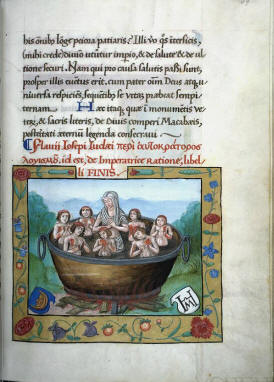 his omnibus longe peiora patiaris? Illi vo qs interficis,
(mihi crede) divino utuntur imperio, & de salute & de ul
tione securi. Nam qui pro causa salutis passi sunt,
prosper illis cursus erit. cum pater
universa respiciens, sequentibus se vitas praebeat sempi
ternam. Haec itaq, quae in monumentis ve
& sacris literis, de Divis comperi Macabaeis,
posteritati legenda conservavi
Flavii Iosepi Iudaei περι αυτοκρατορος
λογισμου. id est, de Imperatrice Ratione, libel
li FINIS